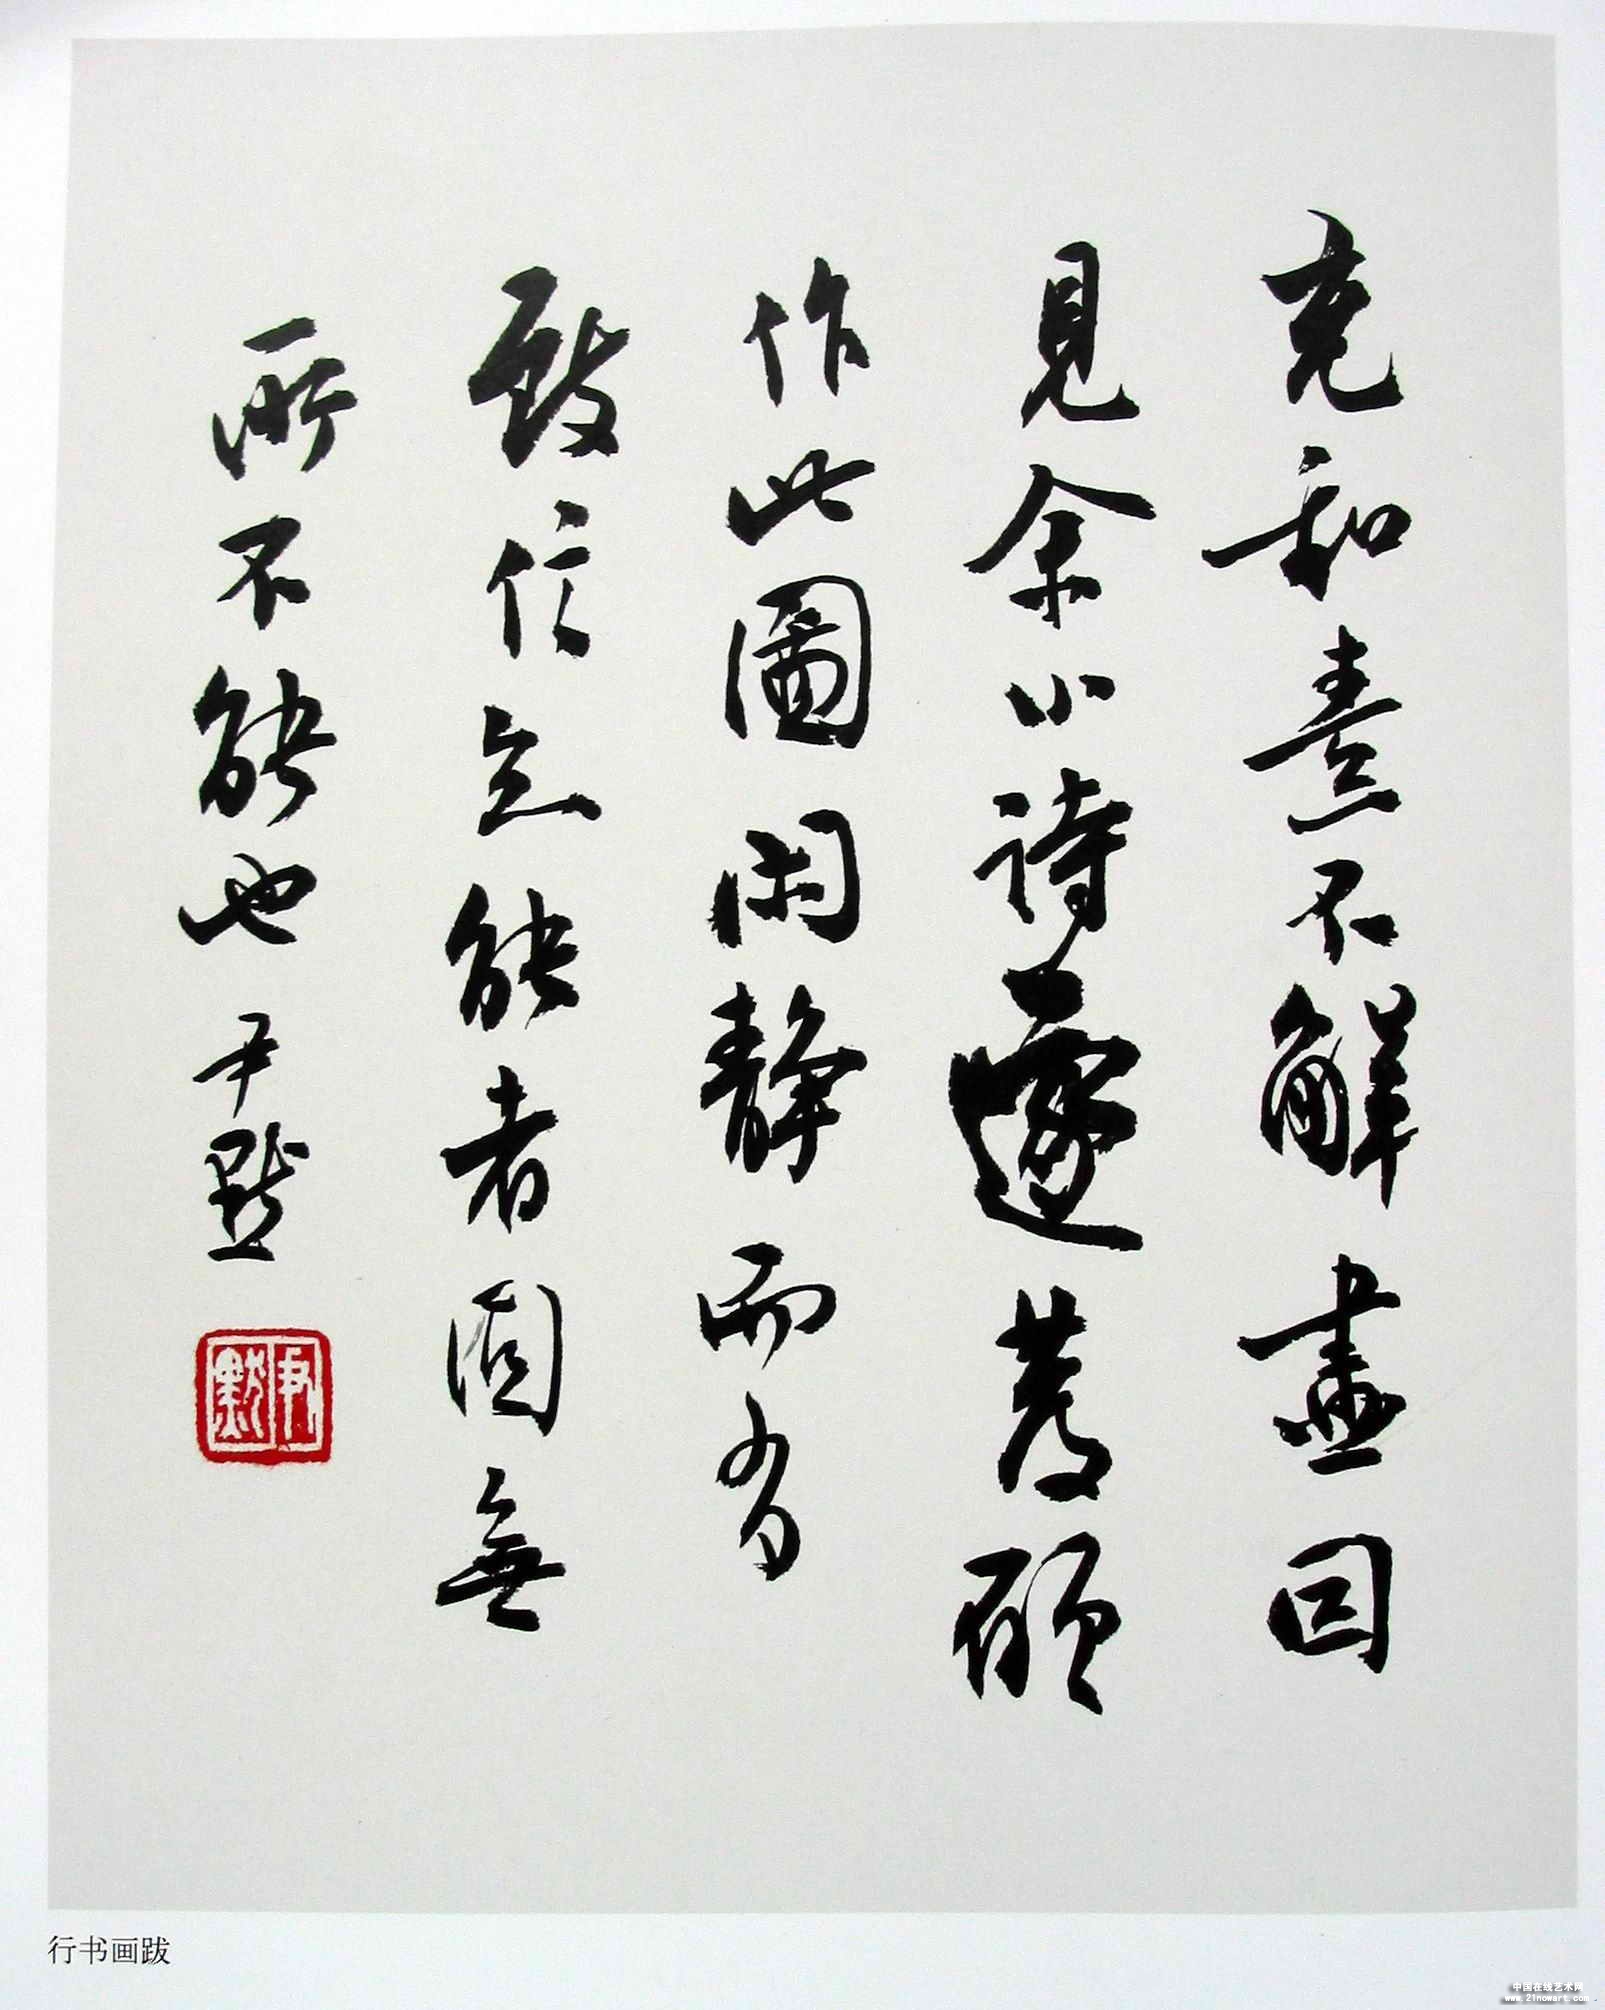 充和素不解畫回
見余小詩遂發願
作此圖閑静而有
致信知能者固無
所不能也 尹默
尹默
行书画跋
中国在线艺术网
www.21nowart.com